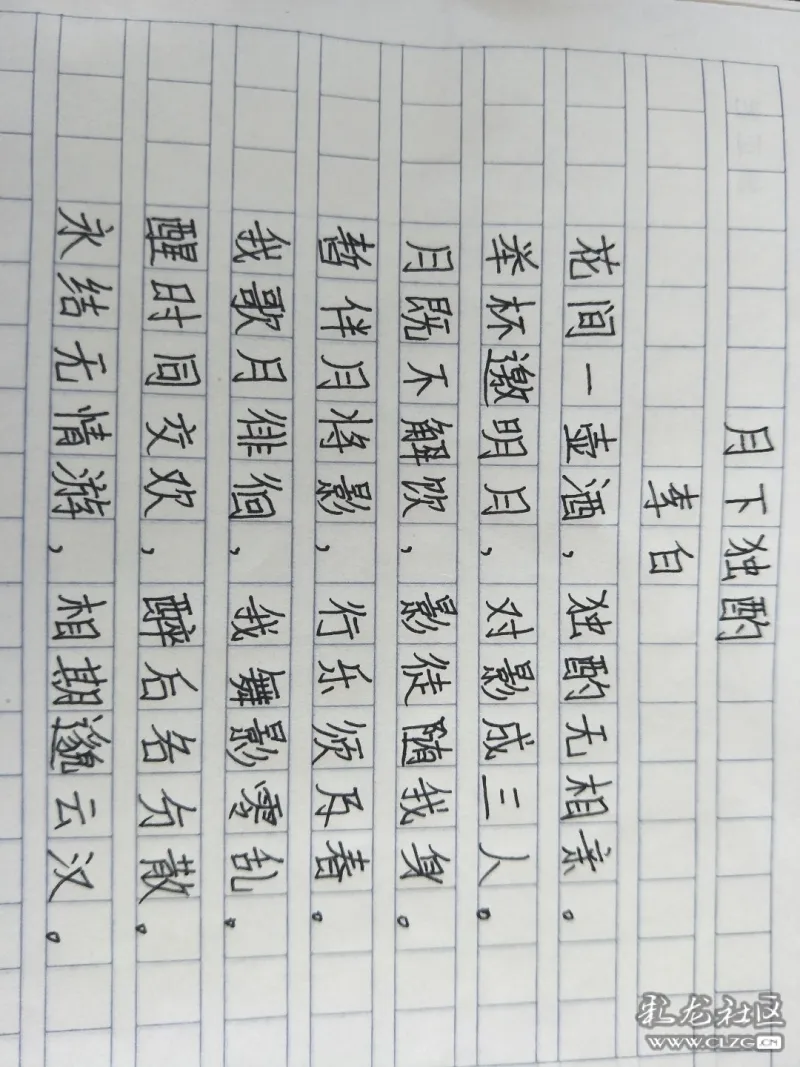 月下独酌
李白
花间一壶酒，独酌无相亲。
举杯邀明月，对影成三人。
月既不解饮，影徒随我身。
暂伴月将影，行乐须及春。
我歌月徘徊，我舞影零乱。
醒时同交欢，醉后各分散。
永结无情游，相期邈云汉。
彩龙社区
WWW.CLZG.CN